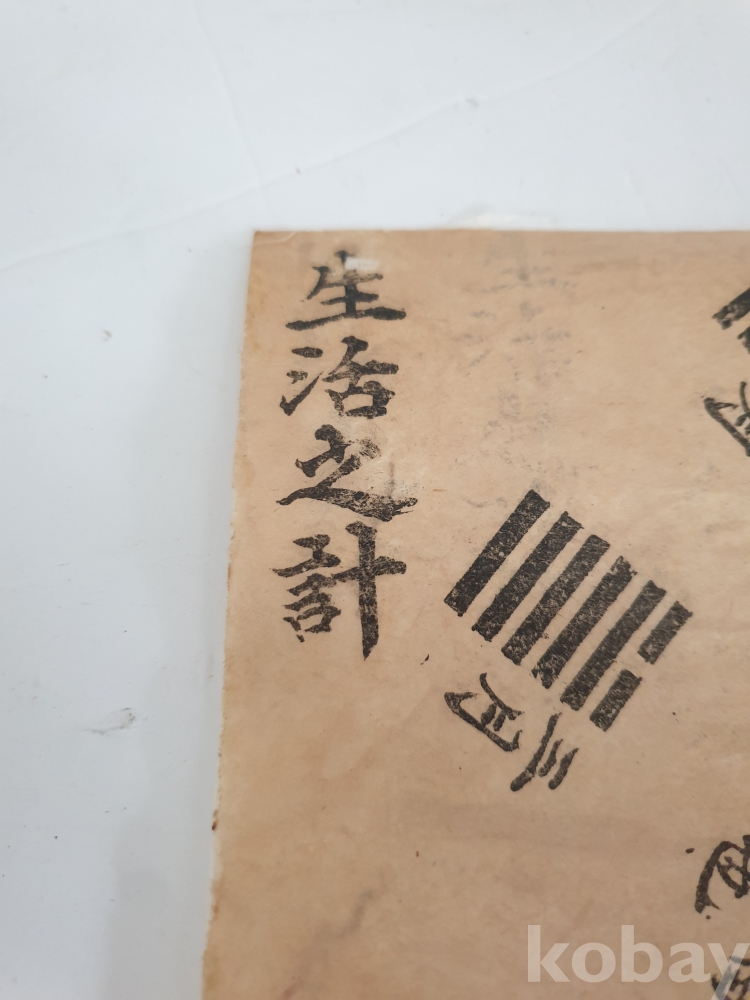 生活之計
三月
kobay